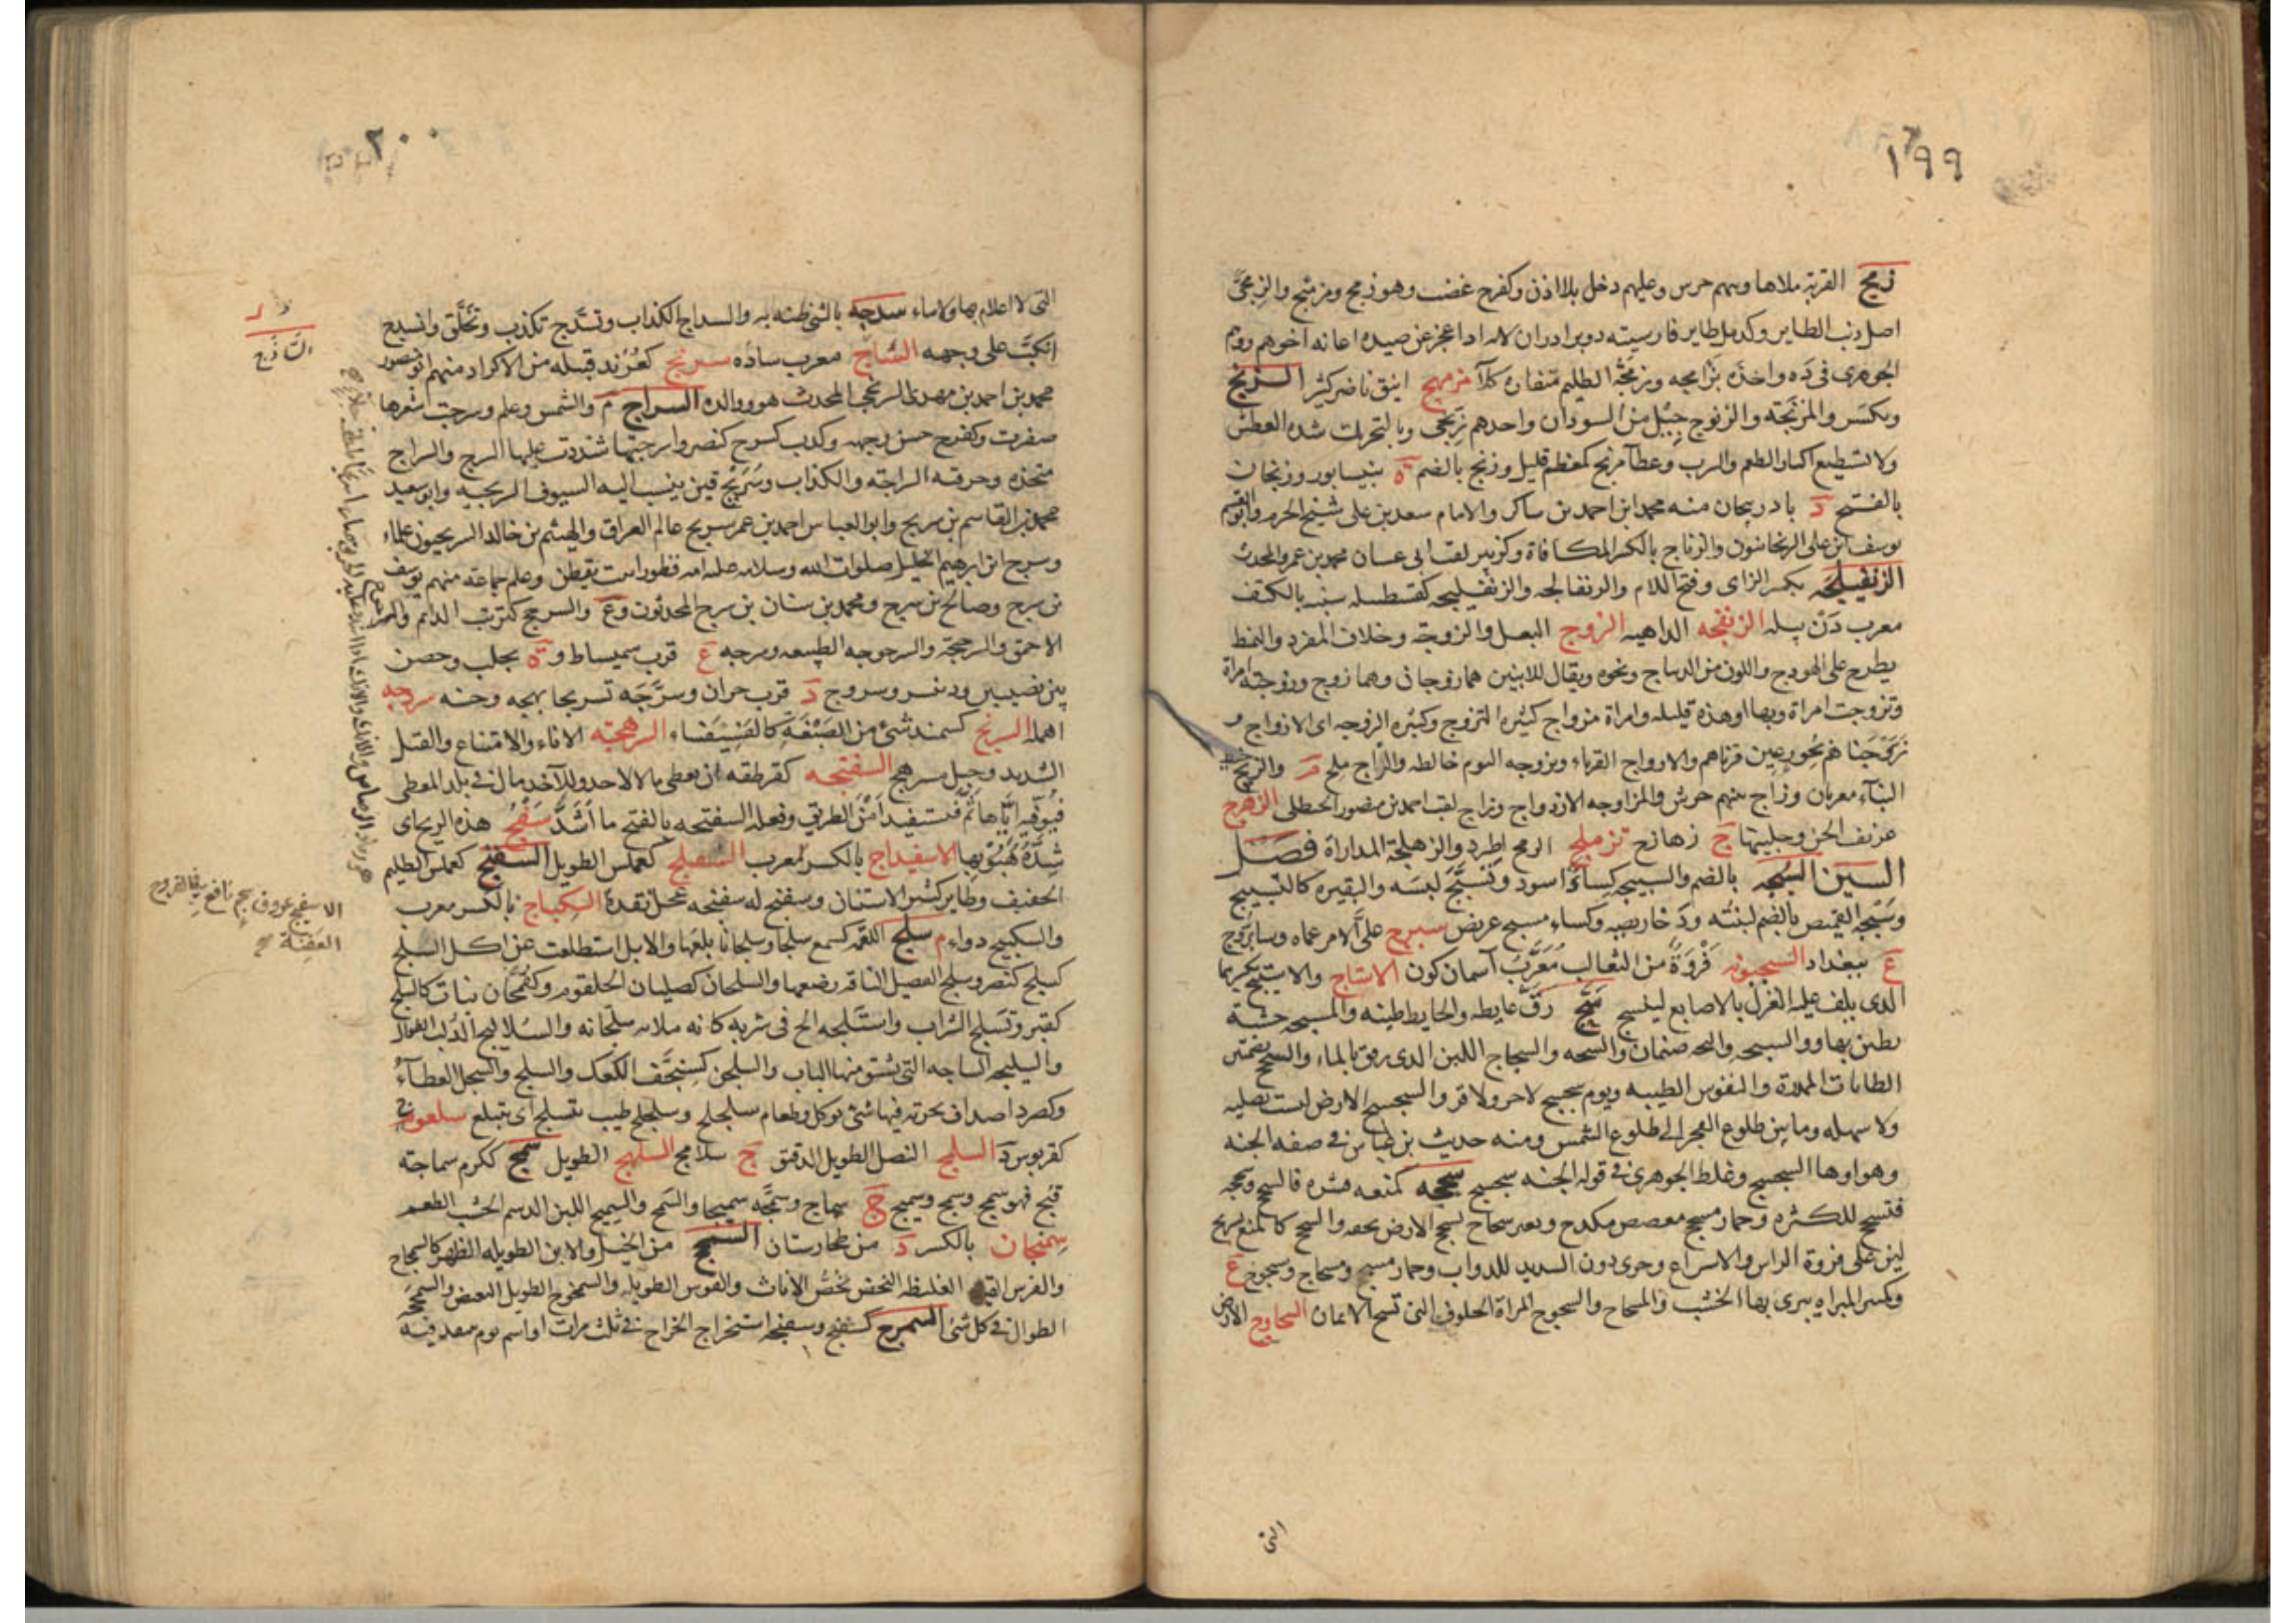 ١٩٩
زمج القربة ملاها وبينهم حرس وعليهم دخل بلا اذن وكفرح غضب وهو زمج ومزمئج والزمجى
اصل ذنب الطاير وكدمل طاير فارسيته دوبرادران لانه اذا عجز عن صيده اعانه اخوهم ووهم
الجوهرى فى ده واخذه بزامجه وزمجة الظليم منقاره كلأ مزمهج انيق ناضر كثير الزنج
ويكسر والمزنجة والزنوج جيل من السودان واحدهم زنجى وبالتحريك شدة العطش
ولا تستطيع اكثار الطعم والشرب وعطآ مزنج كمعظم قليل وزنج بالضم ة بنيسابور وزنجان
بالفتح د باذربيجان منه محمد ابن احمد بن ساكر والامام سعد بن على شيخ الحرم وابو القسم
يوسف ابن على الزنجانيون والزناج بالكسر المكافاة وكزبير لقب ابى غسان محمد بن عمرو المحدث
الزنفيلجه بكسر الزاى وفتح اللام والزنفالجه والزنفليجه كقسطبيله شبيه بالكنف
معرب زن پيله الزنفجه الداهيه الزوج البعل والزوجة وخلاف المفرد والنمط
يطرح على الهودج واللون من الديباج ونحوه ويقال للاثنين هما زوجان وهما زوج وزوجته امراة
وتزوجت امراة وبها او هذه قليله وامراة مزواج كثيرة التزوج وكثيرة الزوجه اى الازواج و
زوجناهم بحور عين قرناهم والازواج القرناء وتزوجه النوم خالطه والزاج ملح م والزيج خيط
البنآء معربان وزاج بينهم حرش والمزاوجه الازدواج وزاج لقب احمد بن منصور الحنظلى الزهزج
عزيف الجن وجلبتها ج زهازج تزملج الرمح اطرد والزهلجة المداراة فصل
السين السبجه بالضم والسبيجه كساءٌ اسود وتسبج لبسه والبقيره كالسبيج
وسبجه القميص بالضم لبنته ودخاريصه وكساء مسبج عريض سبرج على الامر عماه وسابروج
ع ببغداد السبجونه فروة من الثعالب معرب آسمان كون الاستاج والاستيج بكسرهما
الذى يلف عليه الغزل بالاصابع لينسج سج رق غايطه والحايط طينه والمسجه خشبة
يطين بها والسجه والبجه صنمان والسجه والسجاج اللبن الذى رقق بالماء والسجج بضمتين
الطايات الممدرة والنفوس الطيبه ويوم سجسج لا حر ولا قر والسجسج الارض ليست بصلبه
ولا سهله وما بين طلوع الفجر الى طلوع الشمس ومنه حديث بن عباس فى صفه الجنه
وهواوها السجسج وغلط الجوهرى فى قوله الجنه سجسج سحجه كمنعه قشره فانسحج وسحجه
فتسحج للكثره وحمار مسحج معضض مكدح وبعير سحاج يسحج الارض بخفه والسحج كالمنع تسريح
لين على فروة الراس والاسراع وجرى دون الشديد للدواب وحمار مسحج ومسحاج وسحوج ع
وكمنبر المبراة يبرى بها الخشب والمسحاج والسحوج المراة الحلوف التى تسحج الايمان السحاوج الارض
التى
٢٠٠
التى لا اعلام بها ولا ماء سدجه بالشئ ظنه به والسداج الكذاب وتسدج تكذب وتخلق وانسدج
انكب على وجهه الساذج معرب ساده سرنج كعرند قبيله من الاكراد منهم ابو منصور
محمد بن احمد بن مهدى السرنجى المحدث هو ووالده السراج م والشمس وعلم وسرجت شعرها
ضفرت وكفرح حسن وجهه وكذب كسرج كنصر واسرجتها شددت عليها السرج والسراج
متخذه وحرفته السراجة والكذاب وسريج قين ينسب اليه السيوف السريجيه وابو سعيد
محمد بن القاسم بن سريج وابو العباس احمد بن عمر سريج عالم العراق والهيثم بن خالد السريجيون علماء
وسرج ابن ابرهيم الخليل صلوات الله وسلامه عليه امه قطورا بنت يقطن وعلم جماعه منهم يوسف
بن سرج وصالح بن سرج ومحمد بن سنان بن سرج المحدثون وع والسرجج كترتب الدائم
الاحمق والسرجيجة والسرجوجه الطبيعه وسرجه ع قرب سميساط وة بحلب وحصن
بين نصيبين ودنيسر وسروج د قرب حران وسرجه تسريجا بهجه وحسنه سردجه
اهمله السرنج كسمند شئ من الصنعة كالفسيفساء السرهجة الاباء والامتناع والفتل
الشديد وحبل مسرهج السفتجه كقرطقه ان يعطى مالا لاحد وللآخذ مال فى بلد المعطى
فيوفيه اياها ثم فيستفيد امن الطريق وفعله السفتجه بالفتح ما اشد سفج هذه الريح اى
شدة هبوبها الاسفيداج بالكسر معرب السفلج كعملس الطويل السفنج كعملس الظليم
الخفيف وطاير كثير الاستنان وسفنج له سفنجه عجل نقده السكباج بالكسر معرب
والسكبينج دواء م سلج اللقمه كسمع سلجا وسلجانا بلعها والابل استطلقت عن اكل السلج
كسلج كنصر وسلج الفصيل الناقه رضعها والسلجان كصليان الحلقوم وكقمحان نبات كالسلج
كقبر وتسلج الشراب واستلجه الح فى شربه كانه ملا به سلجانه والسلاليج الدلب الطوال
والسليجه الساجه التى يشق منها الباب والسلجن كسنخف الكعك والسلج والسجل العطآء
وكصرد اصداف بحريه فيها شئ يوكل وطعام سلجلج وسلجلج طيب يتسلج اى يتبلع سلعوج
كقربوس د السلمج النصل الطويل الدقيق ج سلامج السلهج الطويل سمج ككرم سماجة
قبح فهو سمج وسمج وسميج ج سماج وسمجه تسميجا والسمج والسميج اللبن الدسم الخبيث الطعم
سمنجان بالكسر د من طخارستان السمحج من الخيل والاتن الطويله الظهر كالسمحاج
والفرس القبا الغليظه النحض تخص الاناث والقوس الطويله والسمحوج الطويل البغيض والسمحجة
الطوال فى كل شئ السمرج كسفنج وسفنجه استخراج الخراج فى ثلث مرات او اسم يوم ينقد فيه
الساذج
الاسفيج عروق شجر نافع فى القروح
العفنة